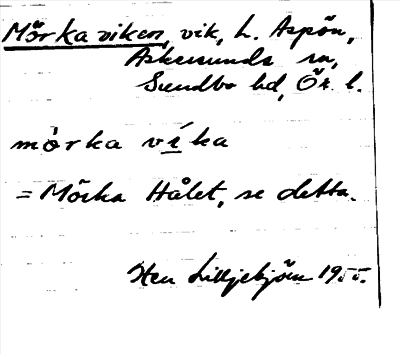 Mörka viken, vik, L. Aspön,
Askersunds sn,
Sundbo hd, Ör. l.
mörka víka
= Mörka Hålet, se detta.
Sten Lilljebjörn 1955.